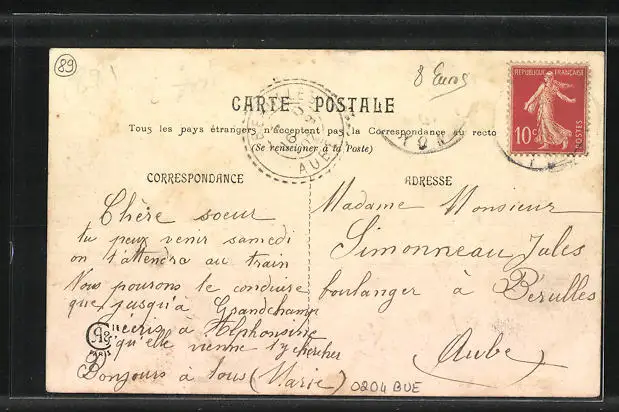 89
8 Euros
CARTE POSTALE
Tous les pays étrangers n'acceptent pas la Correspondance au recto
(Se renseigner à la Poste)
REPUBLIQUE FRANÇAISE
10c
POSTES
AUBE
CORRESPONDANCE
Chère soeur
tu peux venir samedi
on t'attendra au train
Nous pourons te conduire
que jusqu'à Grandchamp
écris à Alphonsine
qu'elle vienne t'y chercher
Bonjours à tous (Marie)
PARIS
ADRESSE
Madame Monsieur
Simonneau Jules
boulanger à Bérulles
Aube
0204 BUE